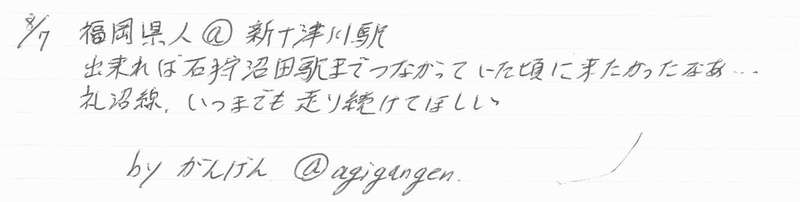 8/7 福岡県人@新十津川駅
出来れば石狩沼田駅までつながっていた頃に来たかったなあ…
札沼線、いつまでも走り続けてほしい
by がんげん @agigangen.